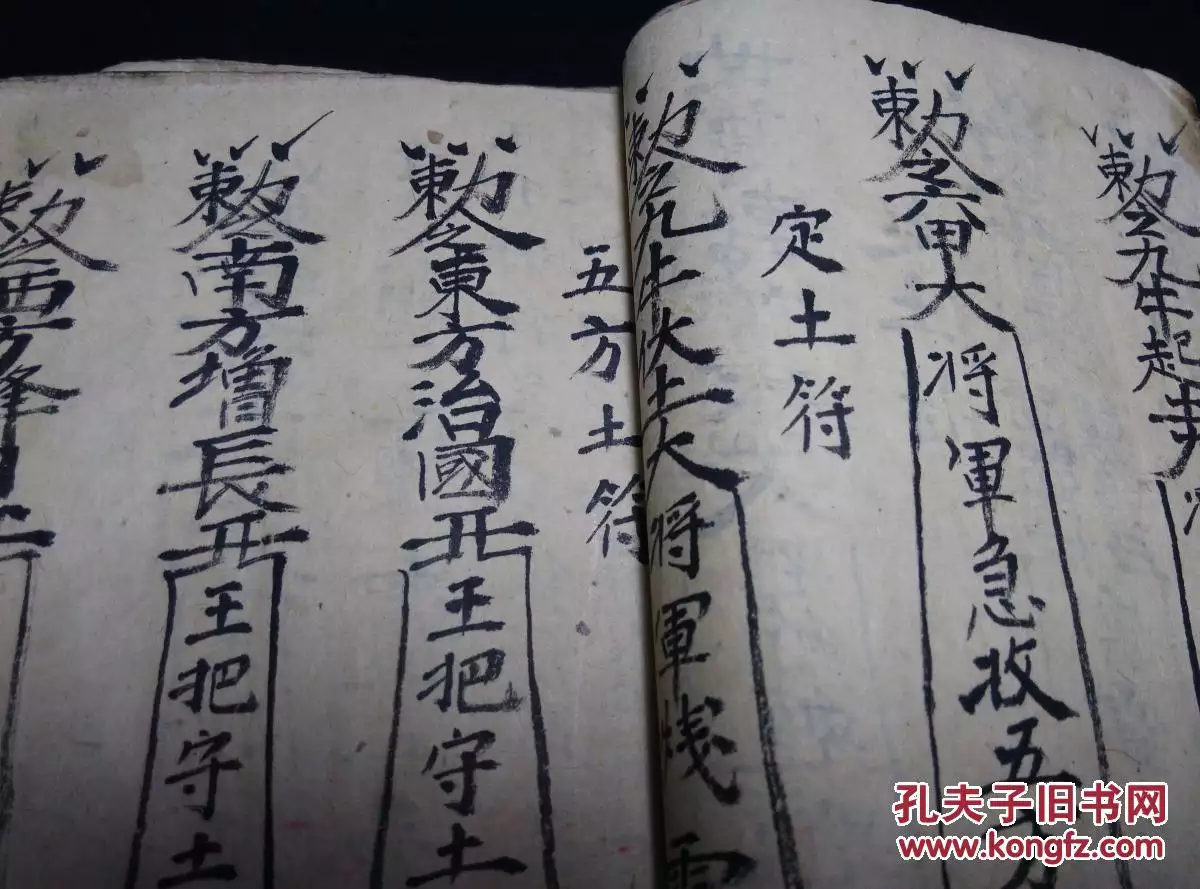 勅令九牛起
勅令六甲大将軍急收五方
定土符
勅令九大土大将軍
五方土符
勅令東方治國王把守土
勅令南方增長王把守土
勅令西方
孔夫子旧书网
www.kongfz.com